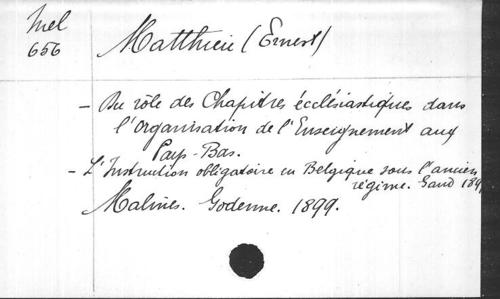 Mel
656
Matthieu (Ernest)
- Du rôle des Chapitres écclésiastiques dans
l'organisation de l'Enseignement aux
Pays-Bas.
- L'Instruction obligatoire en Belgique sous l'ancien
régime. Gand 189
Malines. Godenne. 1899.